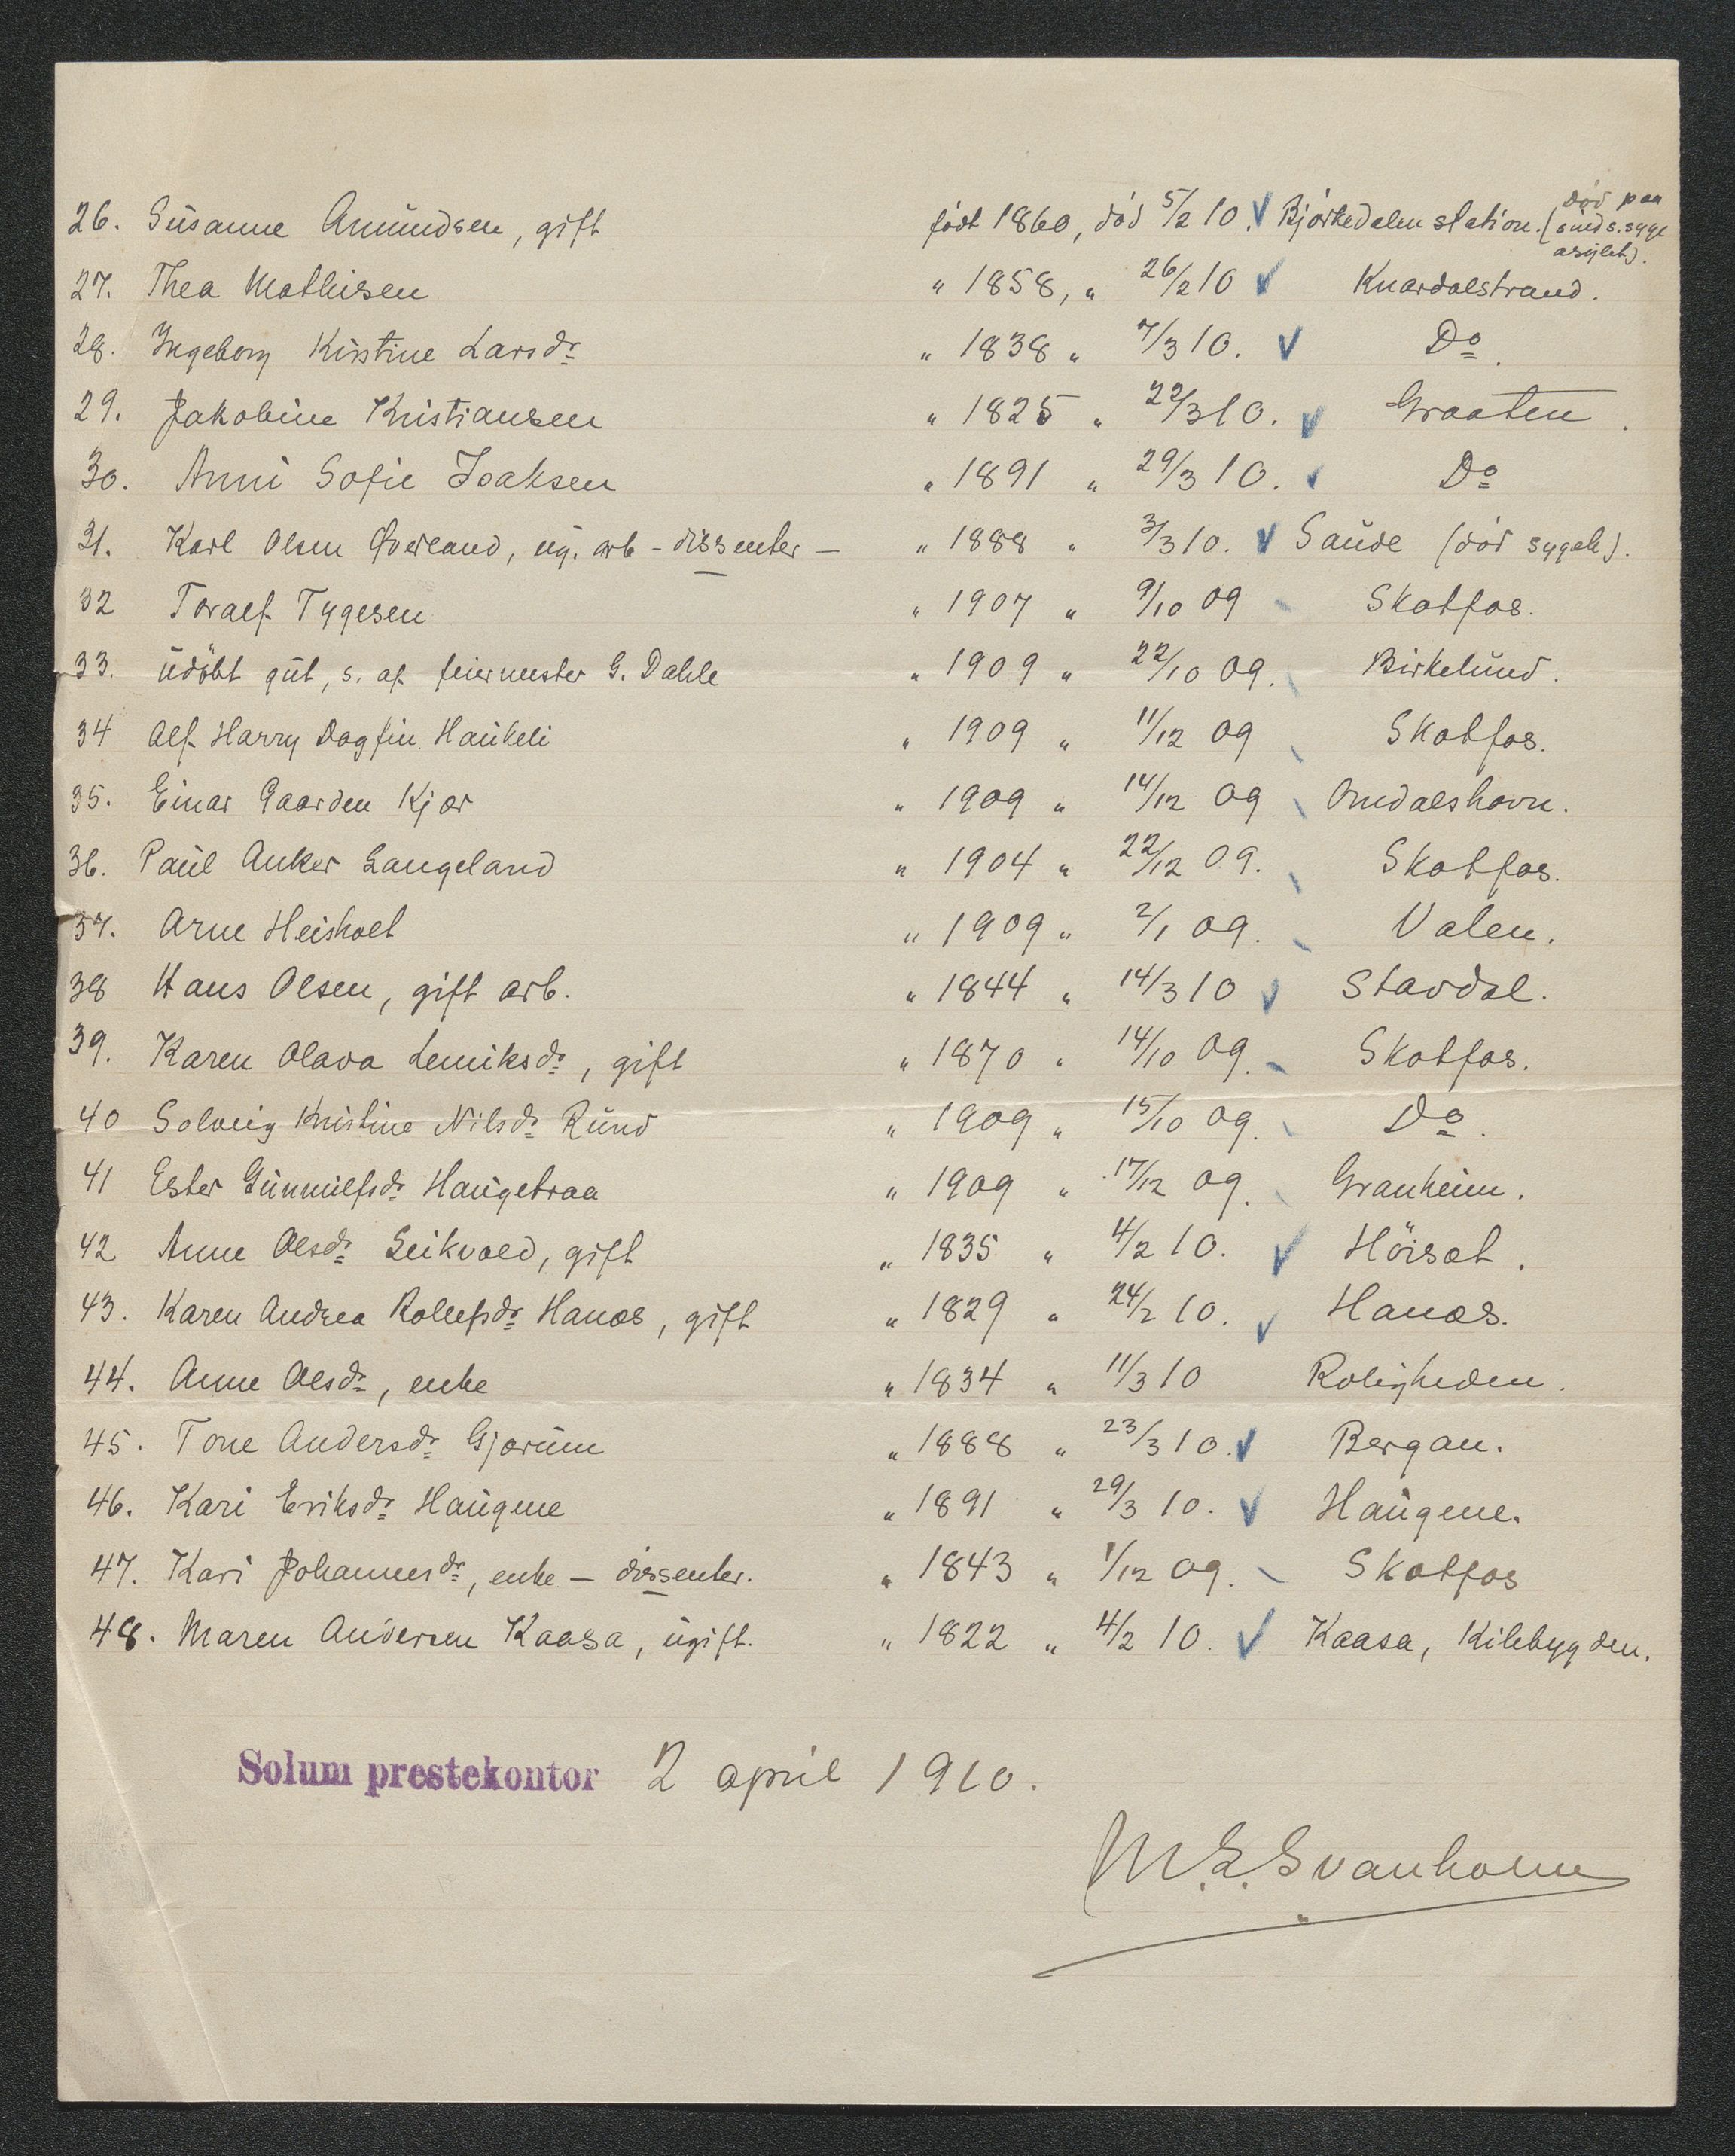 26. Susanne Amundsen, gift født 1860, død 5/2 10. ✓ Bjørkedalen station. (død paa sinds.syge asylet).
27. Thea Mathisen " 1858, " 26/2 10 ✓ Knardalstrand.
28. Ingeborg Kirstine Larsdr " 1838 " 7/3 10. ✓ Do.
29. Jakobine Kristiansen " 1825 " 22/3 10. ✓ Graaten.
30. Anni Sofie Isaksen " 1891 " 29/3 10. ✓ Do
31. Karl Olsen Øverland, ug. arb - dissenter - " 1888 " 3/3 10. ✓ Saude (død sygeh).
32 Toralf Tygesen " 1907 " 9/10 09 Skotfos.
33. udøbt gut, s. af feiermester G. Dahle " 1909 " 22/10 09. Birkelund.
34 Alf Harry Dagfin Haukeli " 1909 " 11/12 09 Skotfos.
35. Einar Gaarden Kjær " 1909 " 14/12 09 Omdalshavn.
36. Paul Anker Langeland " 1904 " 22/12 09. Skotfos.
37. Arne Heisholt " 1909 " 2/1 09. Valen.
38 Hans Olsen, gift arb. " 1844 " 14/3 10 ✓ Stavdal.
39. Karen Olava Lemiksdr, gift " 1870 " 14/10 09. Skotfos.
40 Solveig Kristine Nilsdr Rund " 1909 " 15/10 09. Do.
41 Ester Gunnulfsdr Haugetraa " 1909 " 17/12 09. Granheim.
42 Anne Olsdr Leikvold, gift " 1835 " 4/2 10. ✓ Höisæt.
43. Karen Andrea Rolufsdr Hanæs, gift " 1829 " 24/2 10. ✓ Hanæs.
44. Anne Olsdr, enke " 1834 " 11/3 10 Roligheden.
45. Tone Andersdr Gjærum " 1888 " 23/3 10. ✓ Bergan.
46. Kari Eriksdr Haugene " 1891 " 29/3 10. ✓ Haugene.
47. Kari Johannesdr, enke - dissenter. " 1843 " 1/12 09. Skotfos
48. Maren Andersen Kaasa, ugift. " 1822 " 4/2 10. ✓ Kaasa, Kilebygden.
Solum prestekontor 2 april 1910.
M. E. Svanholm